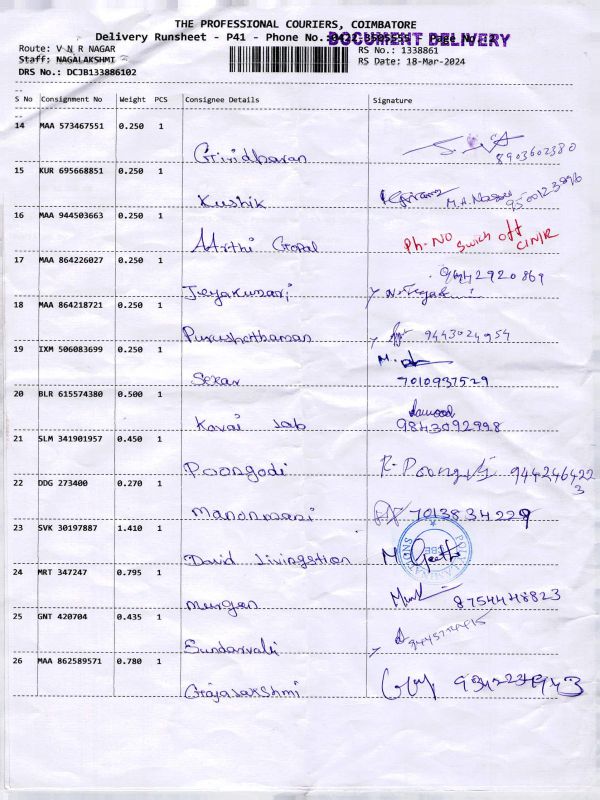 THE PROFESSIONAL COURIERS, COIMBATORE
Delivery Runsheet - P41 - Phone No.: Page No :2
DOCUMENT DELIVERY
Route: V N R NAGAR RS No.: 1338861
Staff: NAGALAKSHMI RS Date: 18-Mar-2024
DRS No.: DCJB133886102
S No Consignment No Weight PCS Consignee Details Signature
14 MAA 573467551 0.250 1
Giridharan 8903602380
15 KUR 695668851 0.250 1
Kushik
16 MAA 944503663 0.250 1
Aarthi Gopal Ph-NO Swich off
17 MAA 864226027 0.250 1
Jeyakumari 9442920869
18 MAA 864218721 0.250 1
Purushothaman 9443024954
19 IXM 506083699 0.250 1
Sekar 7010937529
20 BLR 615574380 0.500 1
Kovai Lab 9843092998
21 SLM 341901957 0.450 1
Poongodi R. Poongodi 9442464223
22 DDG 273400 0.270 1
Manonmani 7013834229
23 SVK 30197887 1.410 1
David Livingstion M Geetha
24 MRT 347247 0.795 1
Murgan 8754448823
25 GNT 420704 0.435 1
Sundarvali
26 MAA 862589571 0.780 1
Grajalakshmi